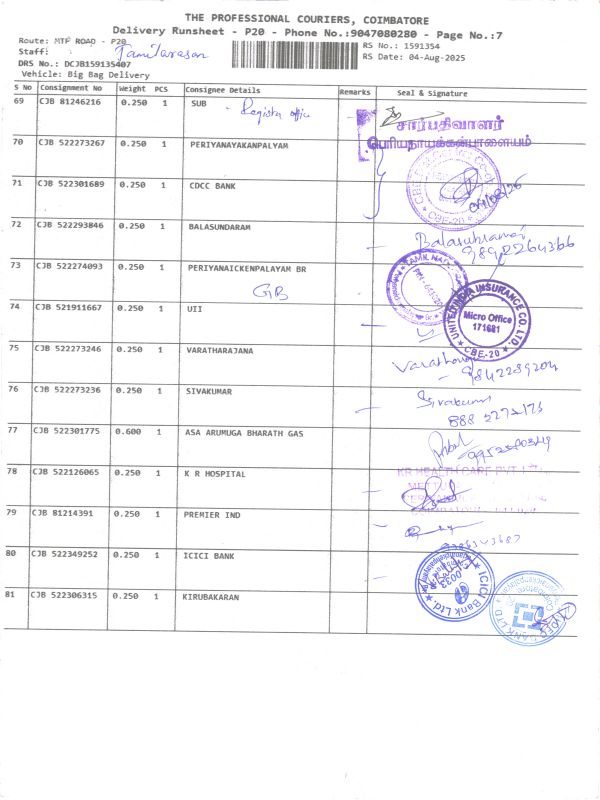 THE PROFESSIONAL COURIERS, COIMBATORE
Delivery Runsheet - P20 - Phone No.:9047080280 - Page No.:7
Route: MTP ROAD - P20
RS No.: 1591354
Staff: : Tamilarasan
RS Date: 04-Aug-2025
DRS No.: DCJB159135407
Vehicle: Big Bag Delivery
S No Consignment No Weight PCS Consignee Details Remarks Seal & Signature
69 CJB 81246216 0.250 1 SUB - Register office
சார்பதிவாளர்
பெரியநாயக்கன்பாளையம்
70 CJB 522273267 0.250 1 PERIYANAYAKANPALYAM
71 CJB 522301689 0.250 1 CDCC BANK
CBE-20
72 CJB 522293846 0.250 1 BALASUNDARAM
73 CJB 522274093 0.250 1 PERIYANAICKENPALAYAM BR
GB
74 CJB 521911667 0.250 1 UII
UNITED INDIA INSURANCE CO. LTD.
Micro Office
171681
CBE-20
75 CJB 522273246 0.250 1 VARATHARAJANA
76 CJB 522273236 0.250 1 SIVAKUMAR
Sivakumar
77 CJB 522301775 0.600 1 ASA ARUMUGA BHARATH GAS
78 CJB 522126065 0.250 1 K R HOSPITAL
KR HEALTH CARE PVT
79 CJB 81214391 0.250 1 PREMIER IND
80 CJB 522349252 0.250 1 ICICI BANK
ICICI Bank Ltd.
81 CJB 522306315 0.250 1 KIRUBAKARAN